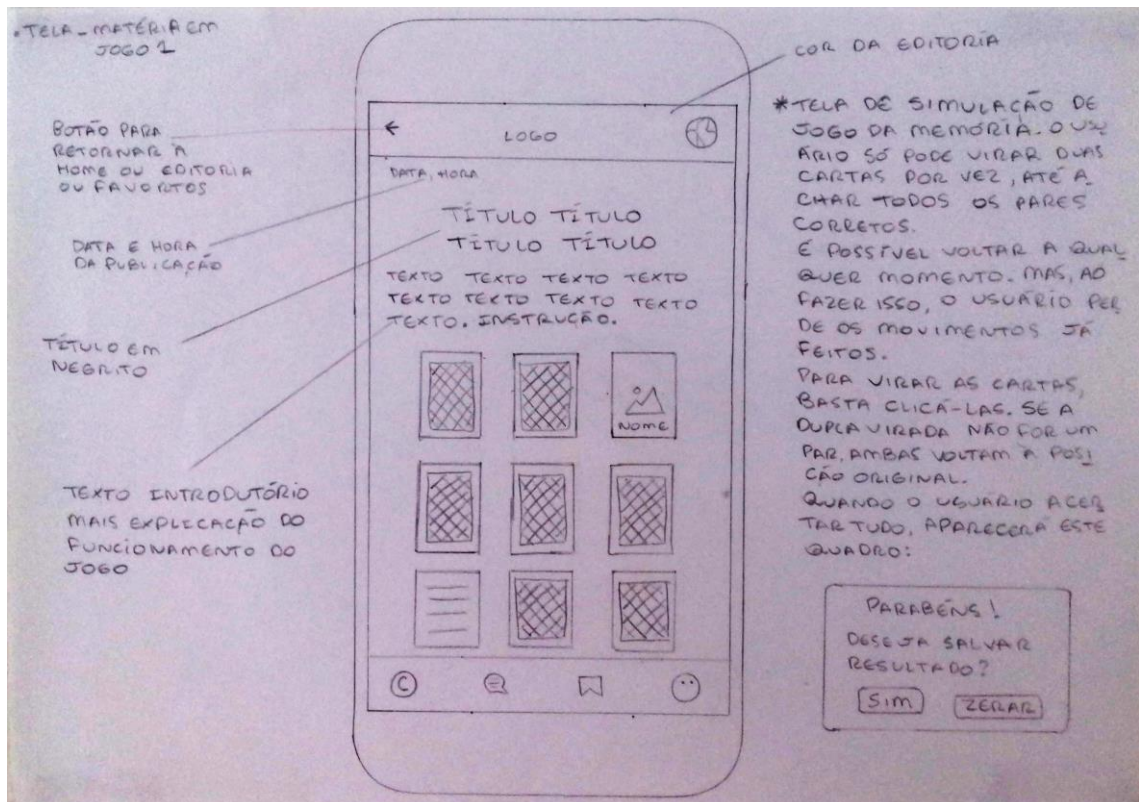 • TELA - MATÉRIA EM
JOGO 1
BOTÃO PARA
RETORNAR À
HOME OU EDITORIA
OU FAVORITOS
DATA E HORA
DA PUBLICAÇÃO
TÍTULO EM
NEGRITO
TEXTO INTRODUTÓRIO
MAIS EXPLICAÇÃO DO
FUNCIONAMENTO DO
JOGO
LOGO
DATA, HORA
TÍTULO TÍTULO
TÍTULO TÍTULO
TEXTO TEXTO TEXTO TEXTO
TEXTO TEXTO TEXTO TEXTO
TEXTO. INSTRUÇÃO.
NOME
©
COR DA EDITORIA
*TELA DE SIMULAÇÃO DE
JOGO DA MEMÓRIA. O USU
ÁRIO SÓ PODE VIRAR DUAS
CARTAS POR VEZ, ATÉ A
CHAR TODOS OS PARES
CORRETOS.
É POSSÍVEL VOLTAR A QUAL
QUER MOMENTO. MAS, AO
FAZER ISSO, O USUÁRIO PER
DE OS MOVIMENTOS JÁ
FEITOS.
PARA VIRAR AS CARTAS,
BASTA CLICÁ-LAS. SE A
DUPLA VIRADA NÃO FOR UM
PAR, AMBAS VOLTAM À POSI
ÇÃO ORIGINAL.
QUANDO O USUÁRIO ACER
TAR TUDO, APARECERÁ ESTE
QUADRO:
PARABÉNS!
DESEJA SALVAR
RESULTADO?
SIM ZERAR